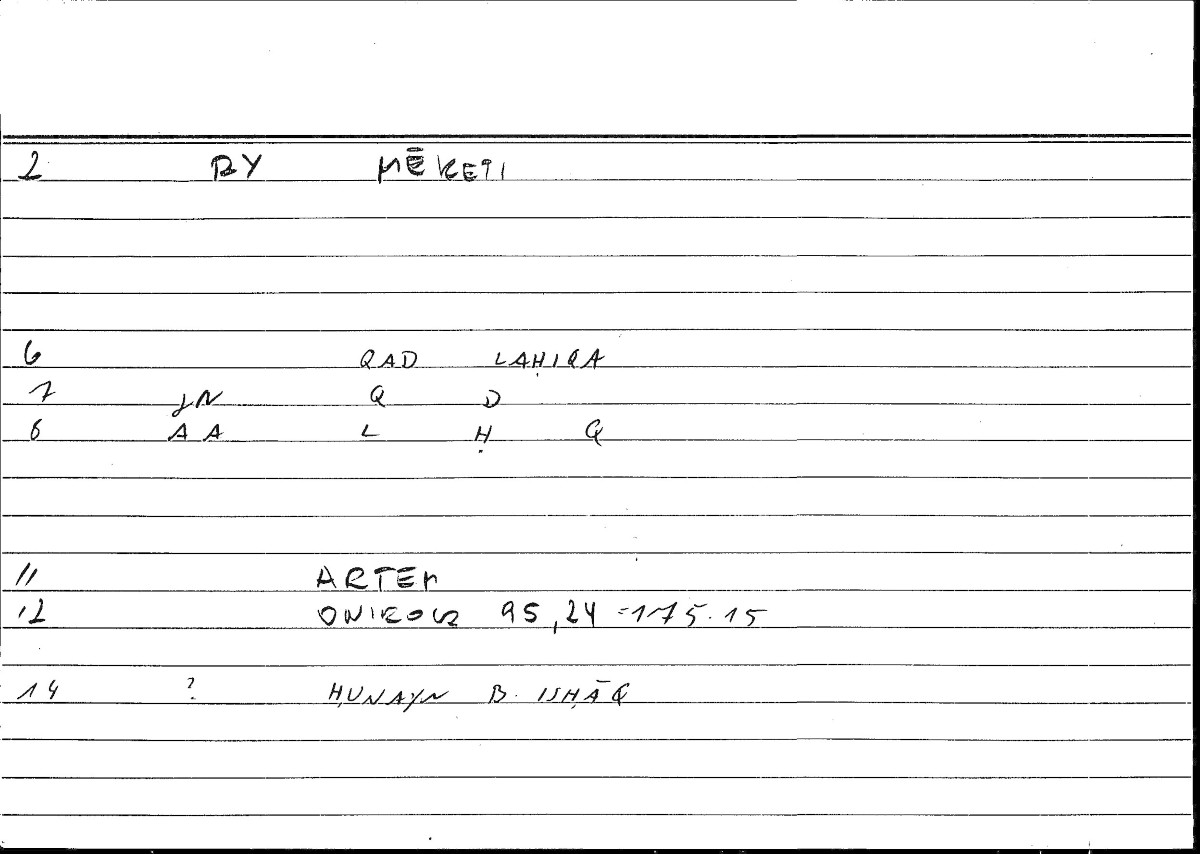 2 BY MĒKETI
6 QAD LAḤIQA
7 JN Q D
8 AA L Ḥ Q
11 ARTEM
12 ONIROCR 95,24 =175.15
14 ? ḤUNAYN B. ISḤĀQ